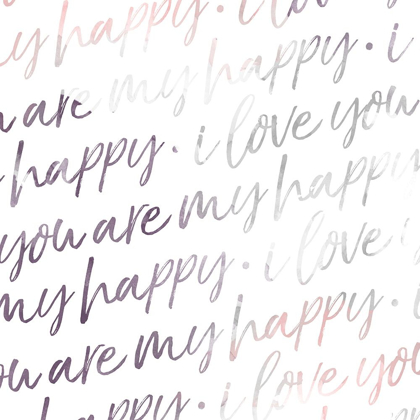 my happy. i l
u are my happy. i
happy. i love you
you are my happy
my happy. i love
ou are my happy.
happy. i love you